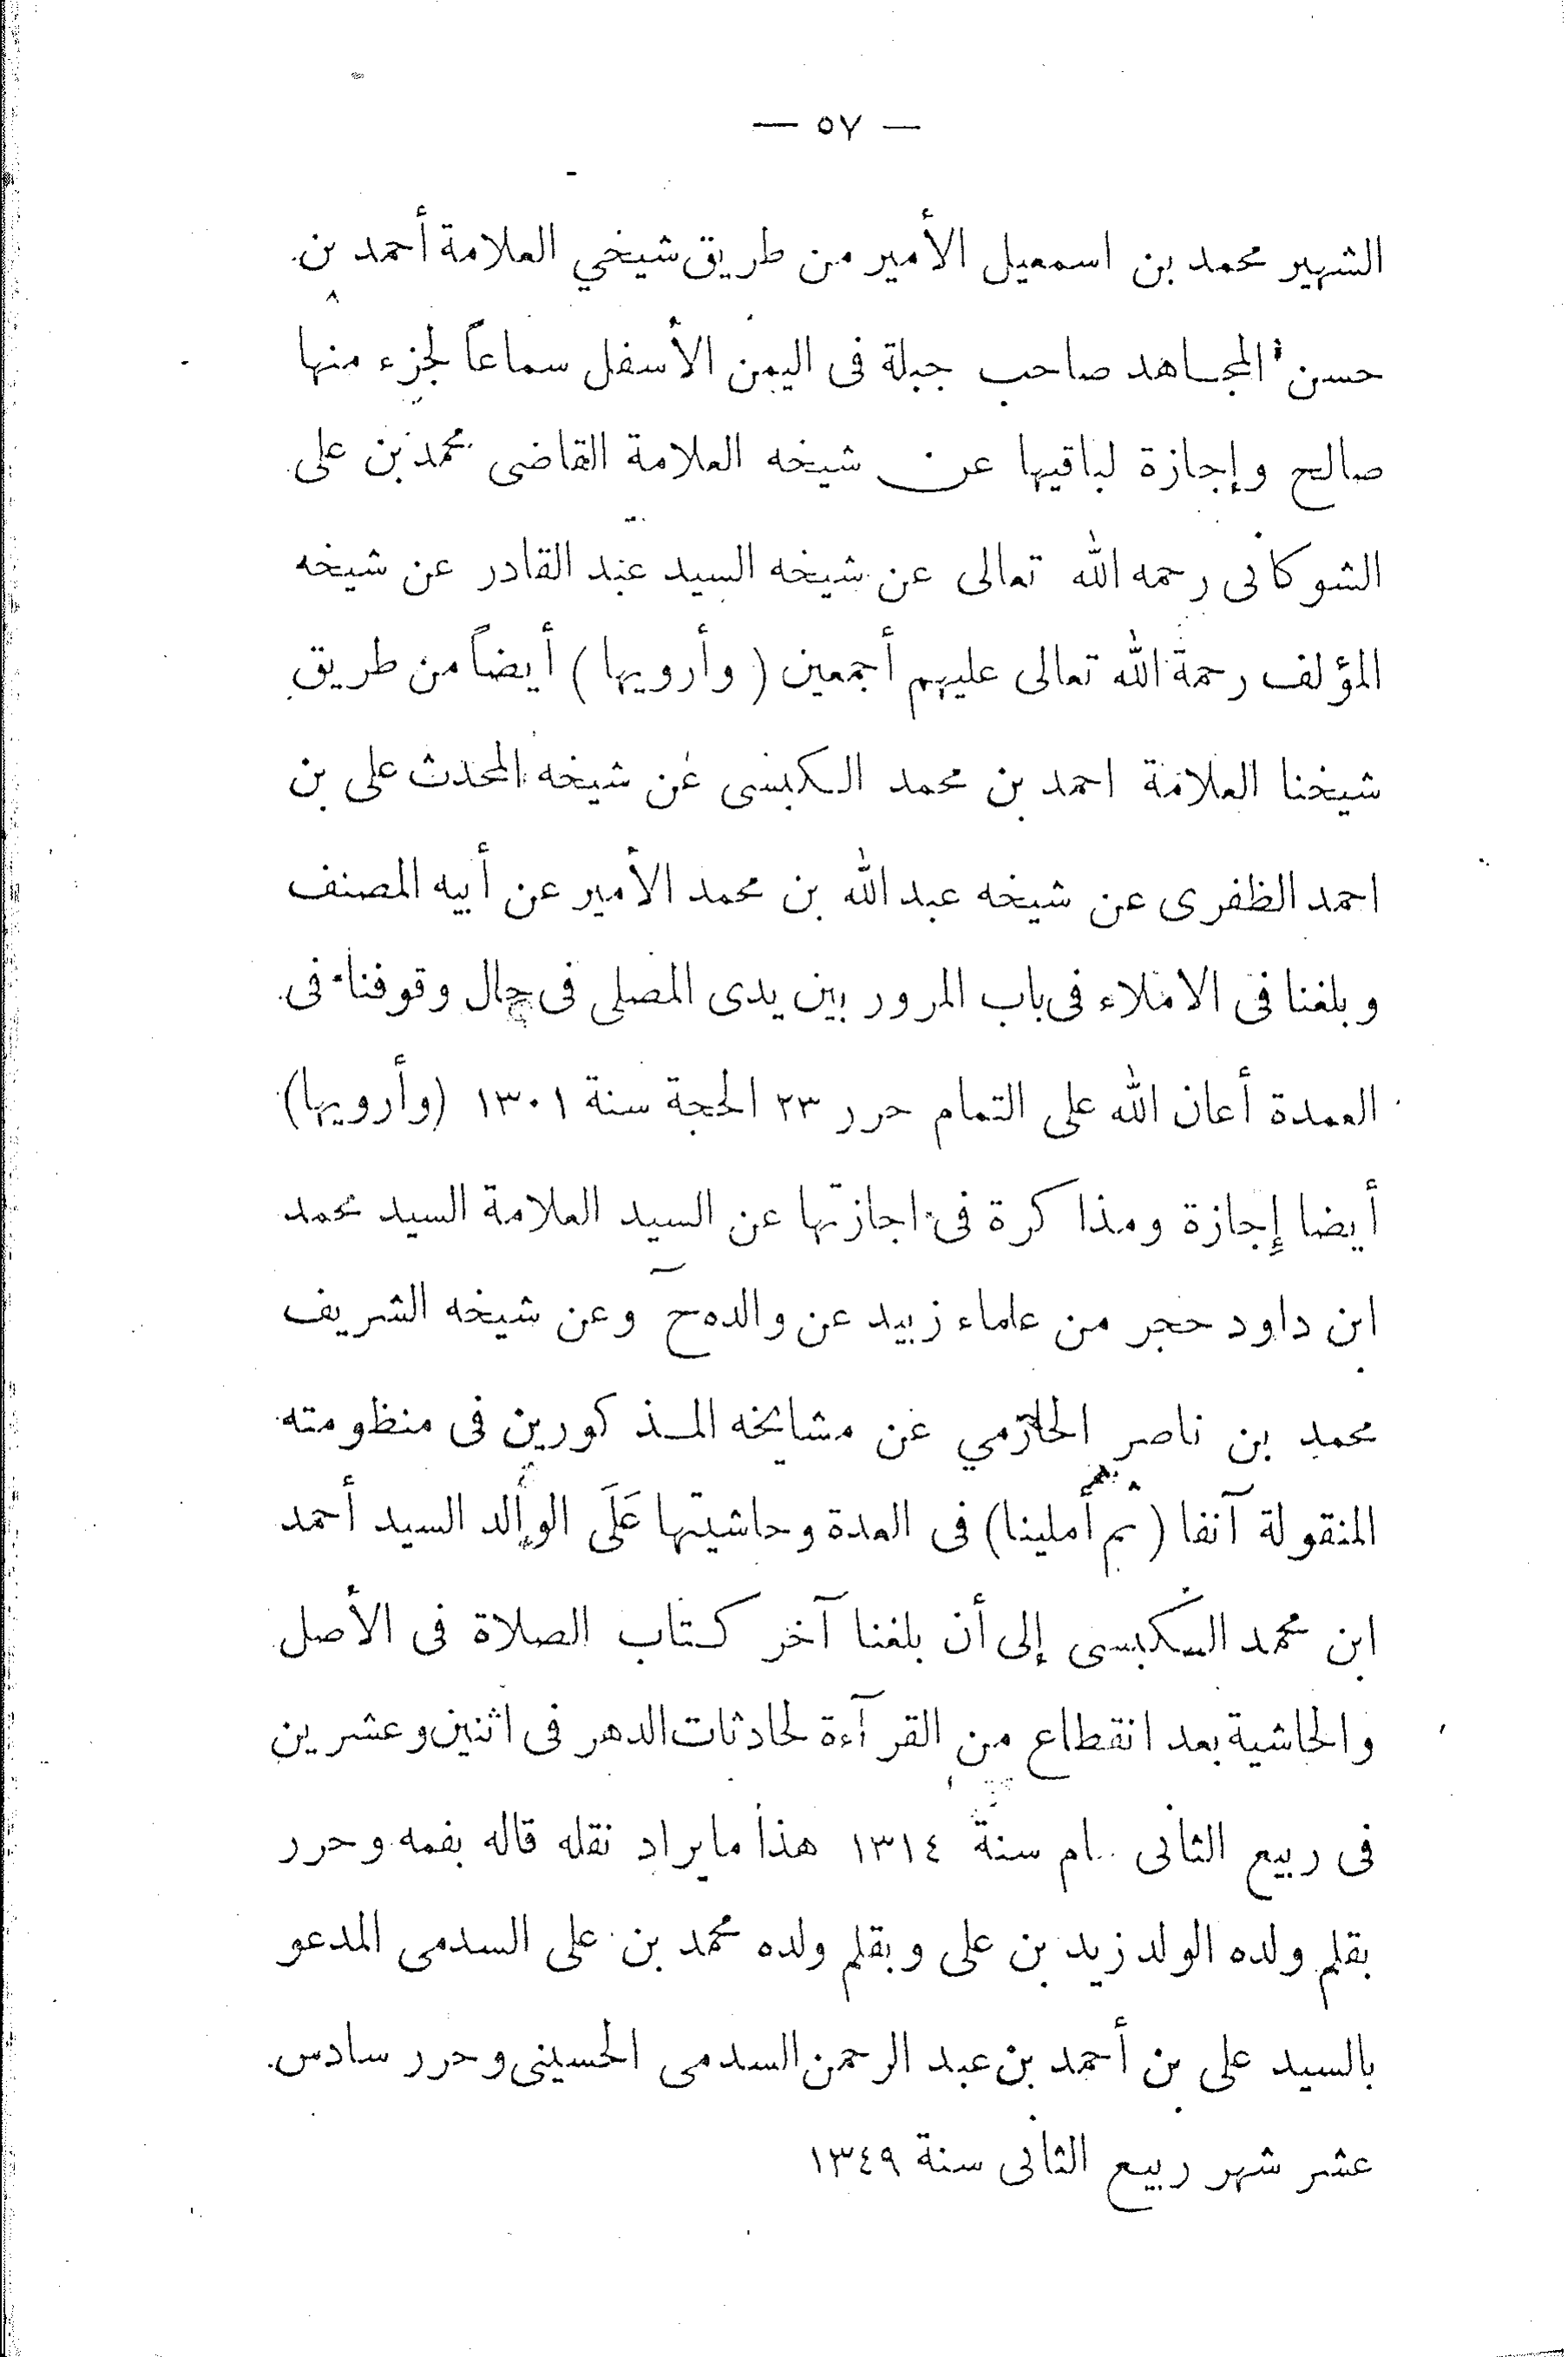 — ٥٧ —
الشهير محمد بن اسمعيل الأمير من طريق شيخي العلامة أحمد بن
حسن المجاهد صاحب جبلة فى اليمن الأسفل سماعاً لجزء منها
صالح وإجازة لباقيها عن شيخه العلامة القاضى محمد بن على
الشوكانى رحمه الله تعالى عن شيخه السيد عبد القادر عن شيخه
المؤلف رحمة الله تعالى عليهم أجمعين ( وأرويها ) أيضاً من طريق
شيخنا العلامة احمد بن محمد الكبسى عن شيخه المحدث على بن
احمد الظفرى عن شيخه عبد الله بن محمد الأمير عن أبيه المصنف
وبلغنا فى الاملاء فى باب المرور بين يدى المصلى فى حال وقوفنا فى
العمدة أعان الله على التمام حرر ٢٣ الحجة سنة ١٣٠١ (وأرويها)
أيضا إجازة ومذاكرة فى اجازتها عن السيد العلامة السيد محمد
ابن داود حجر من علماء زبيد عن والده ح وعن شيخه الشريف
محمد بن ناصر الحازمي عن مشايخه المذكورين فى منظومته
المنقولة آنفا ( ثم أملينا) فى العدة وحاشيتها عَلَى الوالد السيد أحمد
ابن محمد الكبسى إلى أن بلغنا آخر كتاب الصلاة فى الأصل
والحاشية بعد انقطاع من القرآءة لحادثات الدهر فى اثنين وعشرين
فى ربيع الثانى سنة ١٣١٤ هذا ما يراد نقله قاله بفمه وحرر
بقلم ولده الولد زيد بن على وبقلم ولده محمد بن على السدمى المدعو
بالسيد على بن أحمد بن عبد الرحمن السدمى الحسينى وحرر سادس
عشر شهر ربيع الثانى سنة ١٣٤٩